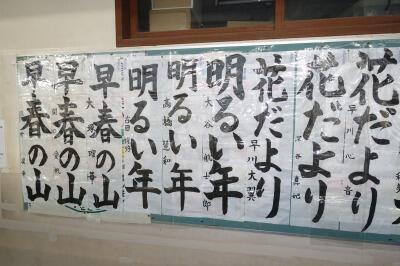 花だより
花だより
早川心音
花だより
早川大翼
明るい年
明るい年
明るい年
早春の山
早春の山
早春の山